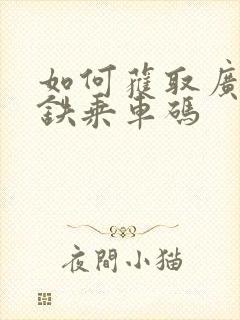 如何獲取廣
鉄乗車碼
夜間小猫